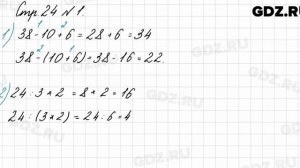 Стр. 24 № 1.
GDZ.RU
1) 38 - 10 + 6 = 28 + 6 = 34
38 - (10 + 6) = 38 - 16 = 22.
2) 24 : 3 * 2 = 8 * 2 = 16
24 : (3 * 2) = 24 : 6 = 4
GDZ.RU